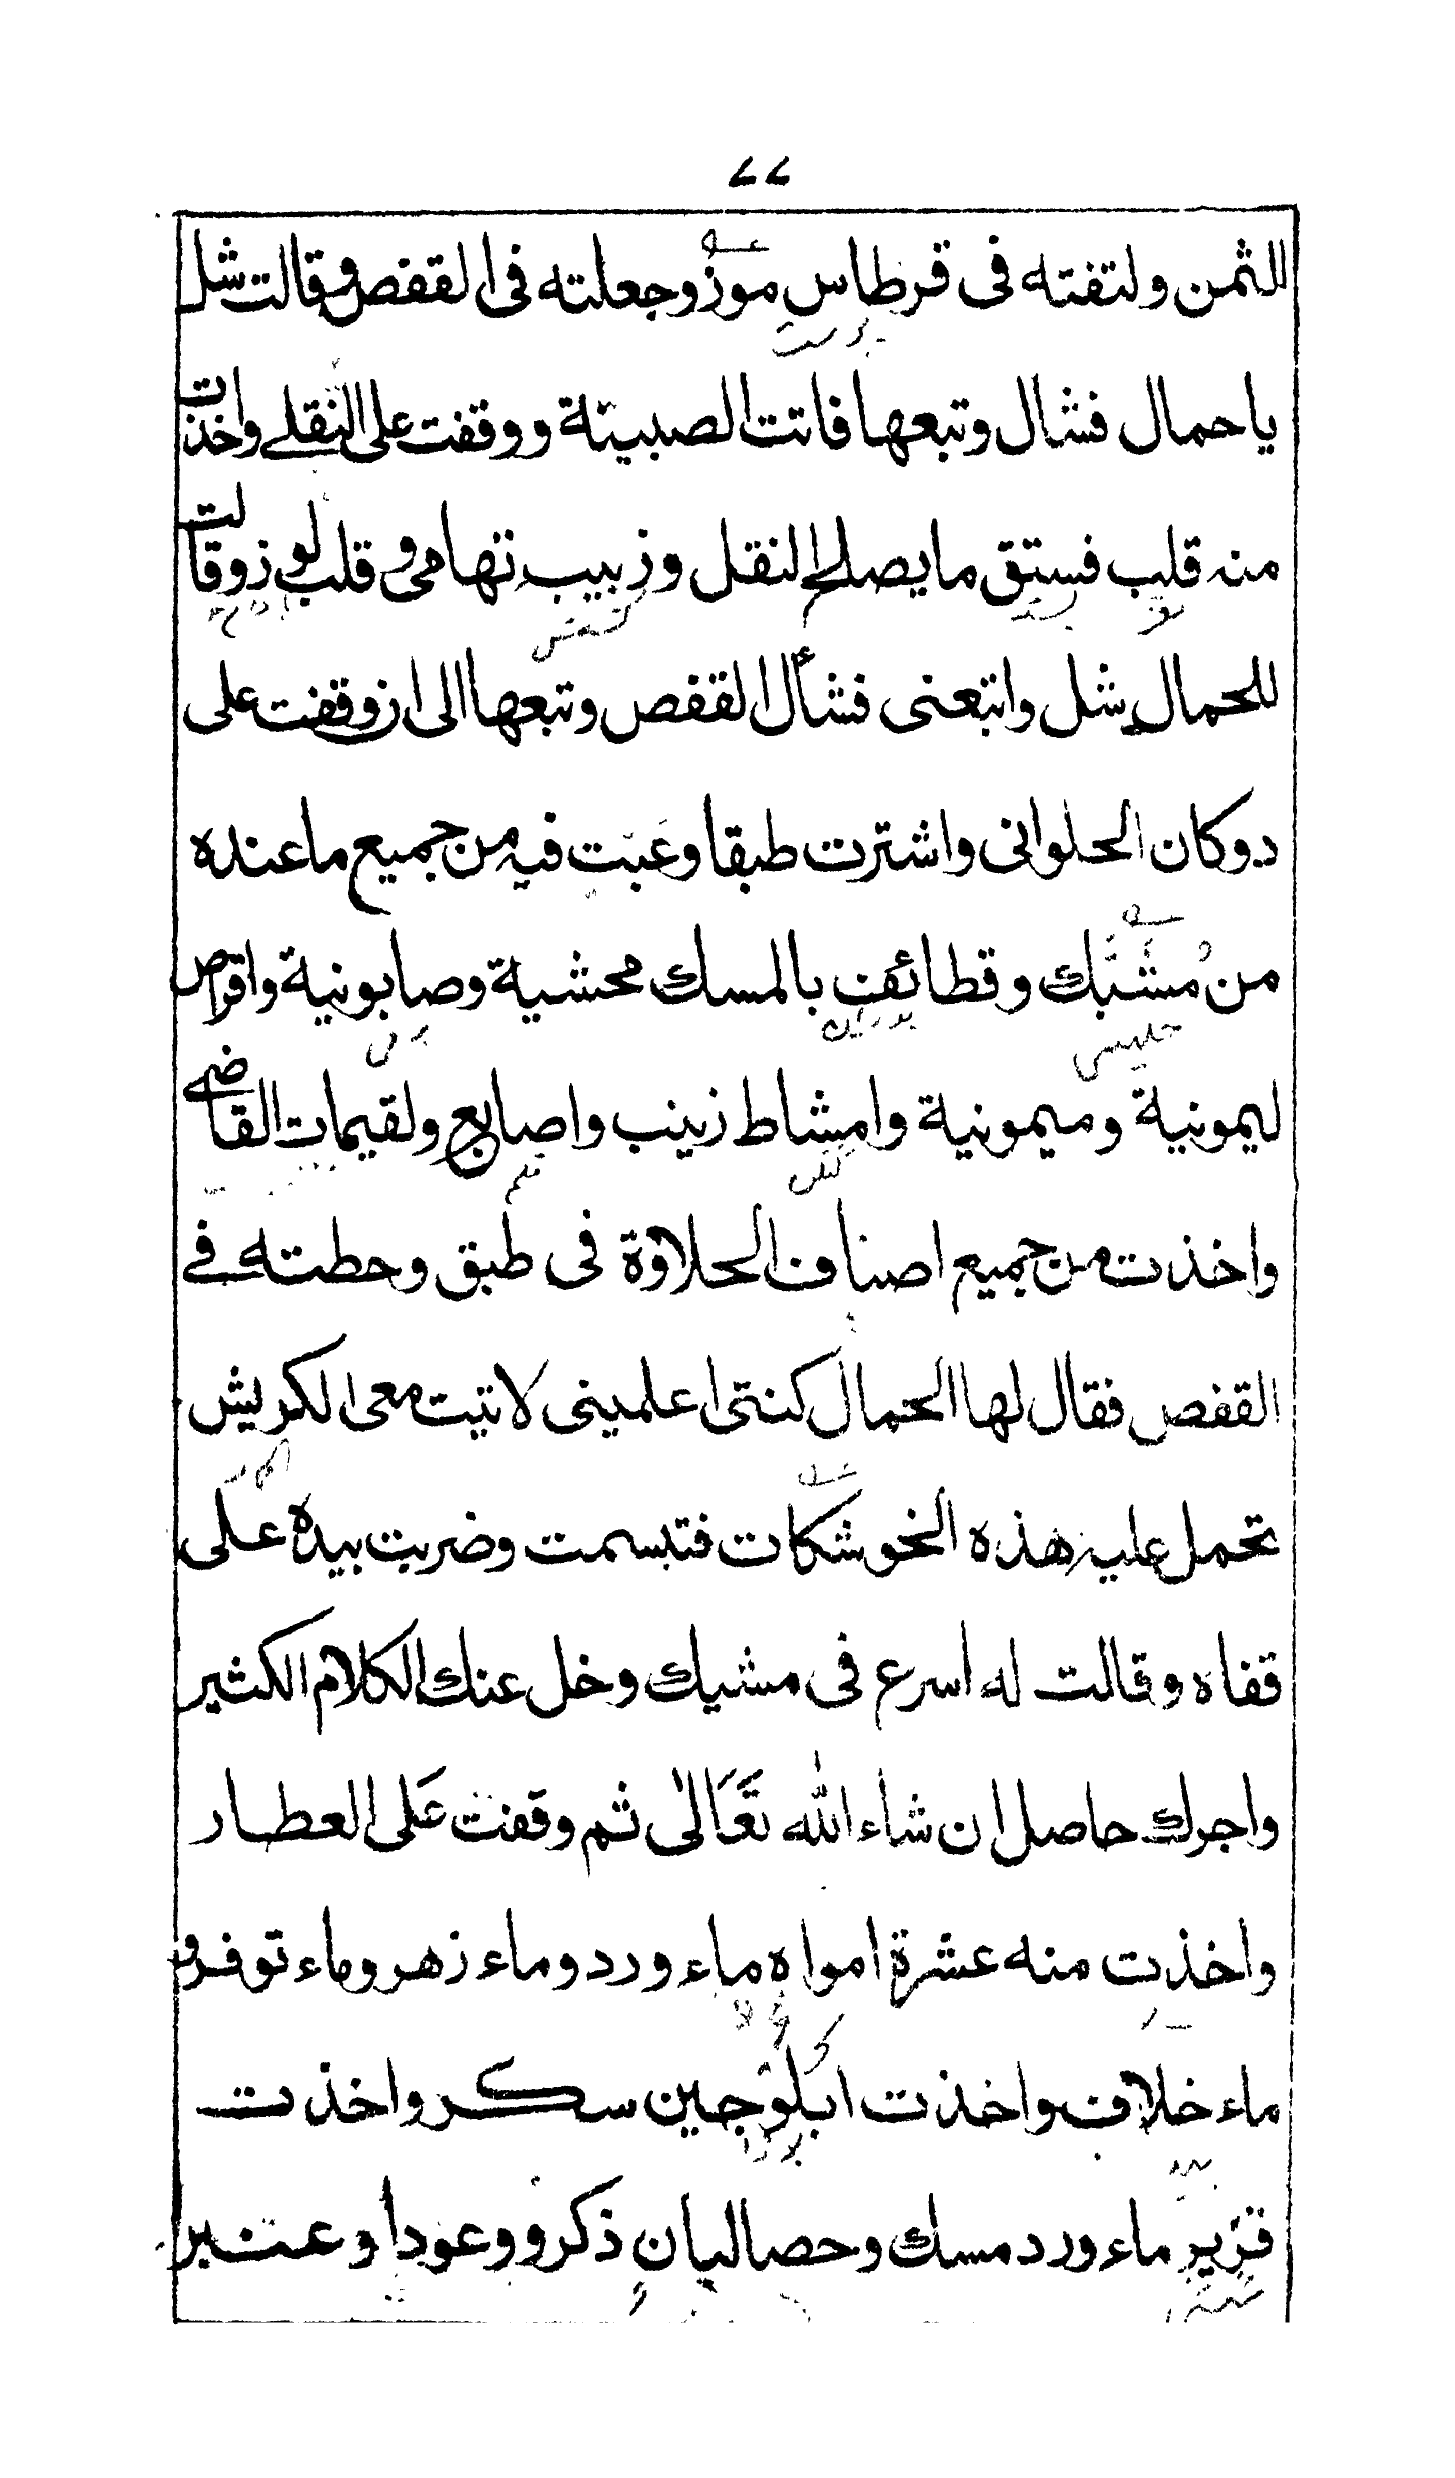 ٧٧
الثمن ولتفته فى قرطاسِ موز وجعلته فى القفص وقالت شل
ياحمال فشال وتبعها فاتت الصبيتة ووقفت على النقلے واخذت
منه قلب فستق ما يصلح النقل وزبيب تهامى و قلب لوز وقالت
للحمال شل واتبعنى فشأل القفص وتبعها الى ان وقفت على
دوكان الحلوانى واشترت طبقا وعَبّت فيه من جميع ما عنده
من مُشَبَّك وقطائف بالمسك محشية وصابونية واقراص
ليمونية وميمونية وامشاط زينب واصابع ولقيمات القاضے
واخذت من جميع اصناف الحلاوة فى طبق وحطته فے
القفص فقال لها الحمال كنتى اعلمينى لاتيت معى الكريش
تحمل عليه هذه الخوشكات فتبسمت وضربت بيده على
قفاه وقالت له اسرع فى مشيك وخل عنك الكلام الكثير
واجرك حاصل ان شاء الله تَعَالىٰ ثم وقفت عَلى العطار
واخذت منه عشرة امواه ماء ورد وماء زهر وماء نوفر و
ماء خلاف واخذت ابلوجين سكر واخذت
ماء ورد مسك وحصا لبان ذكر و وعودا و عنبرا